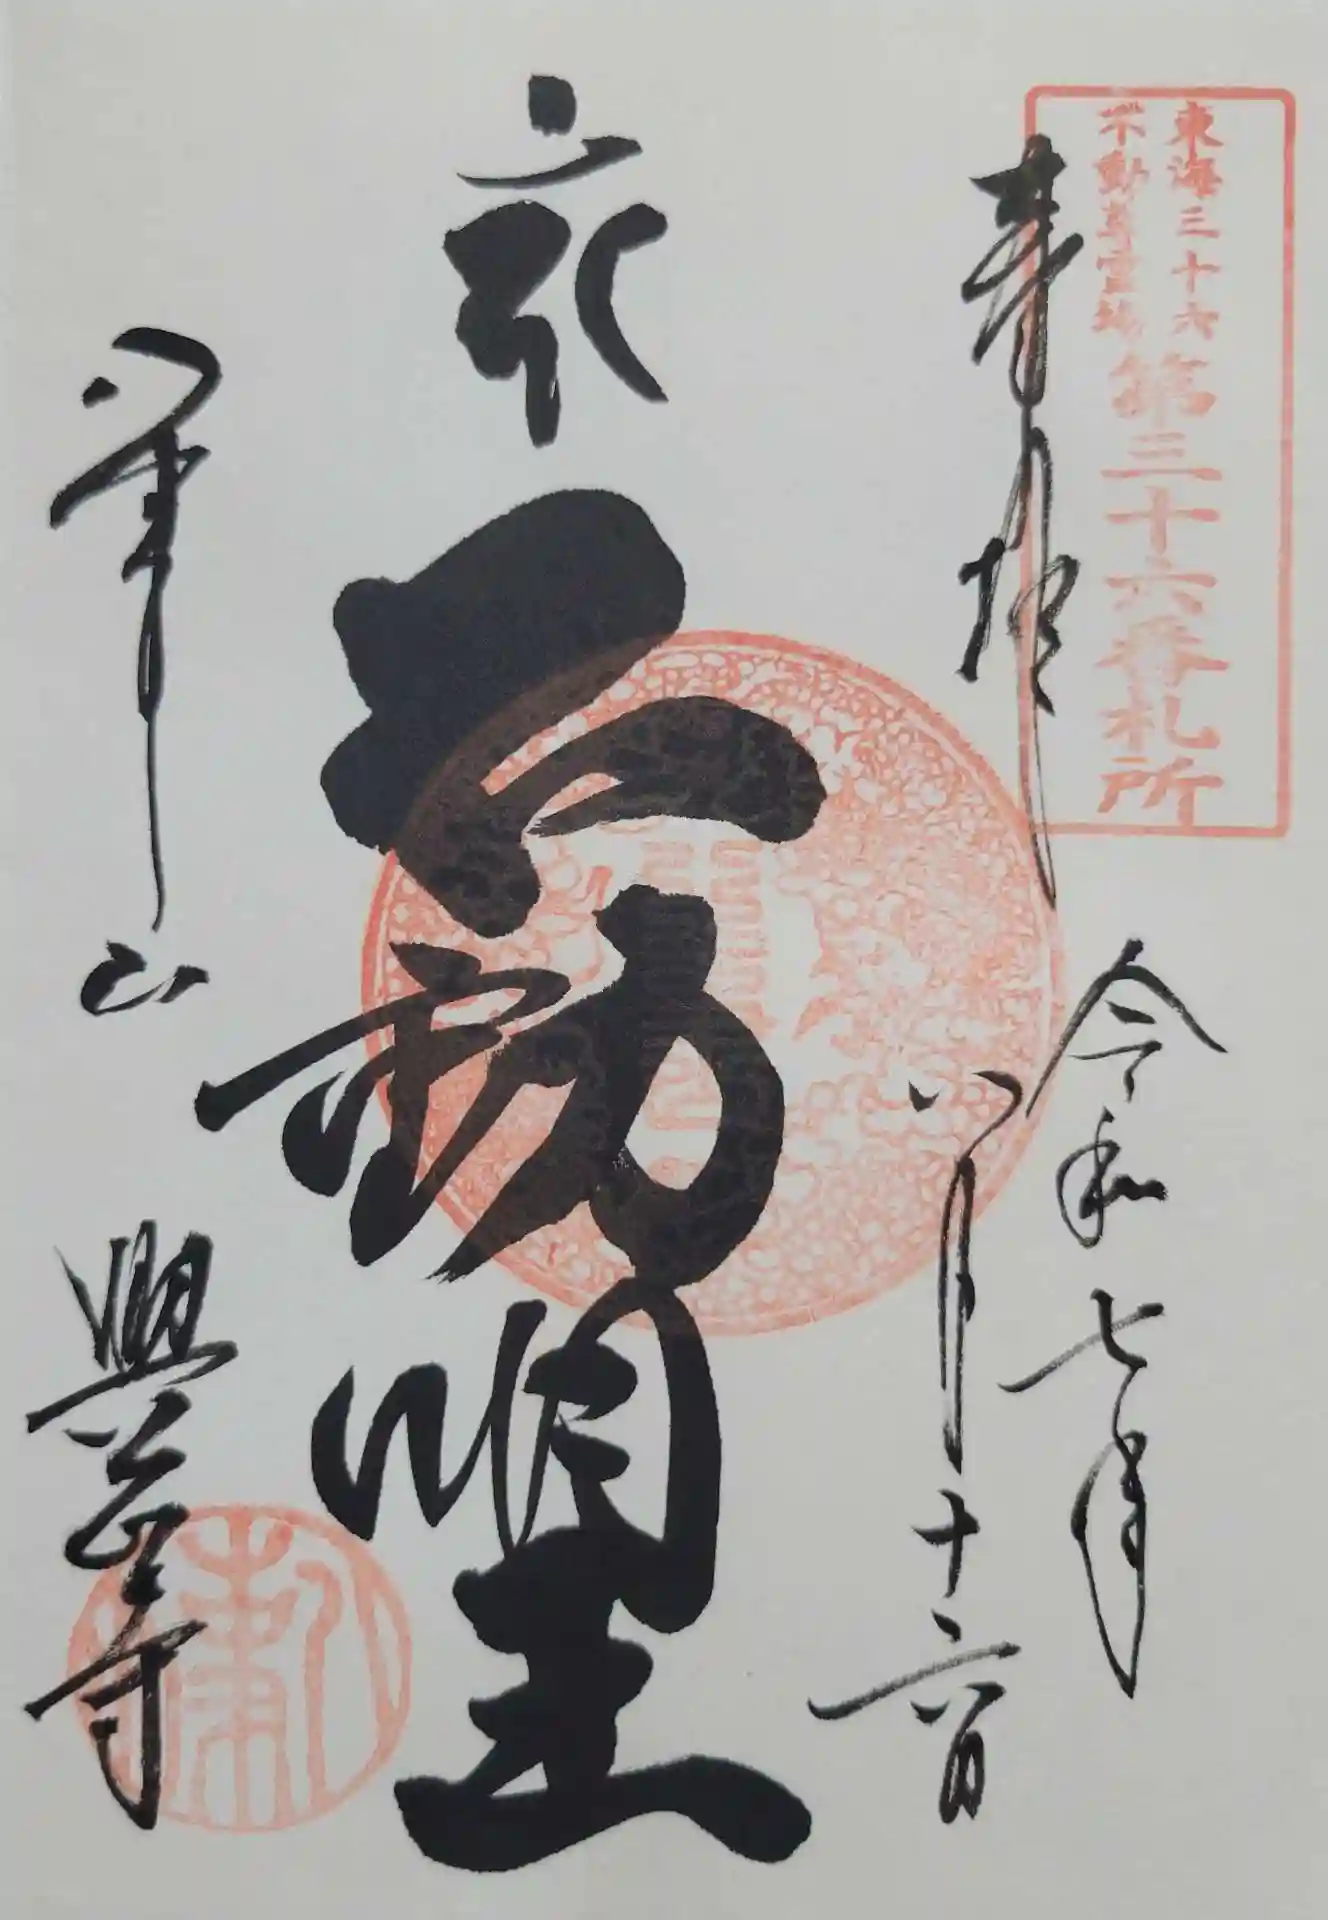 東海三十六
不動尊霊場
第三十六番札所
奉拝
令和七年
八月十六日
不動明王
八事山
興正寺